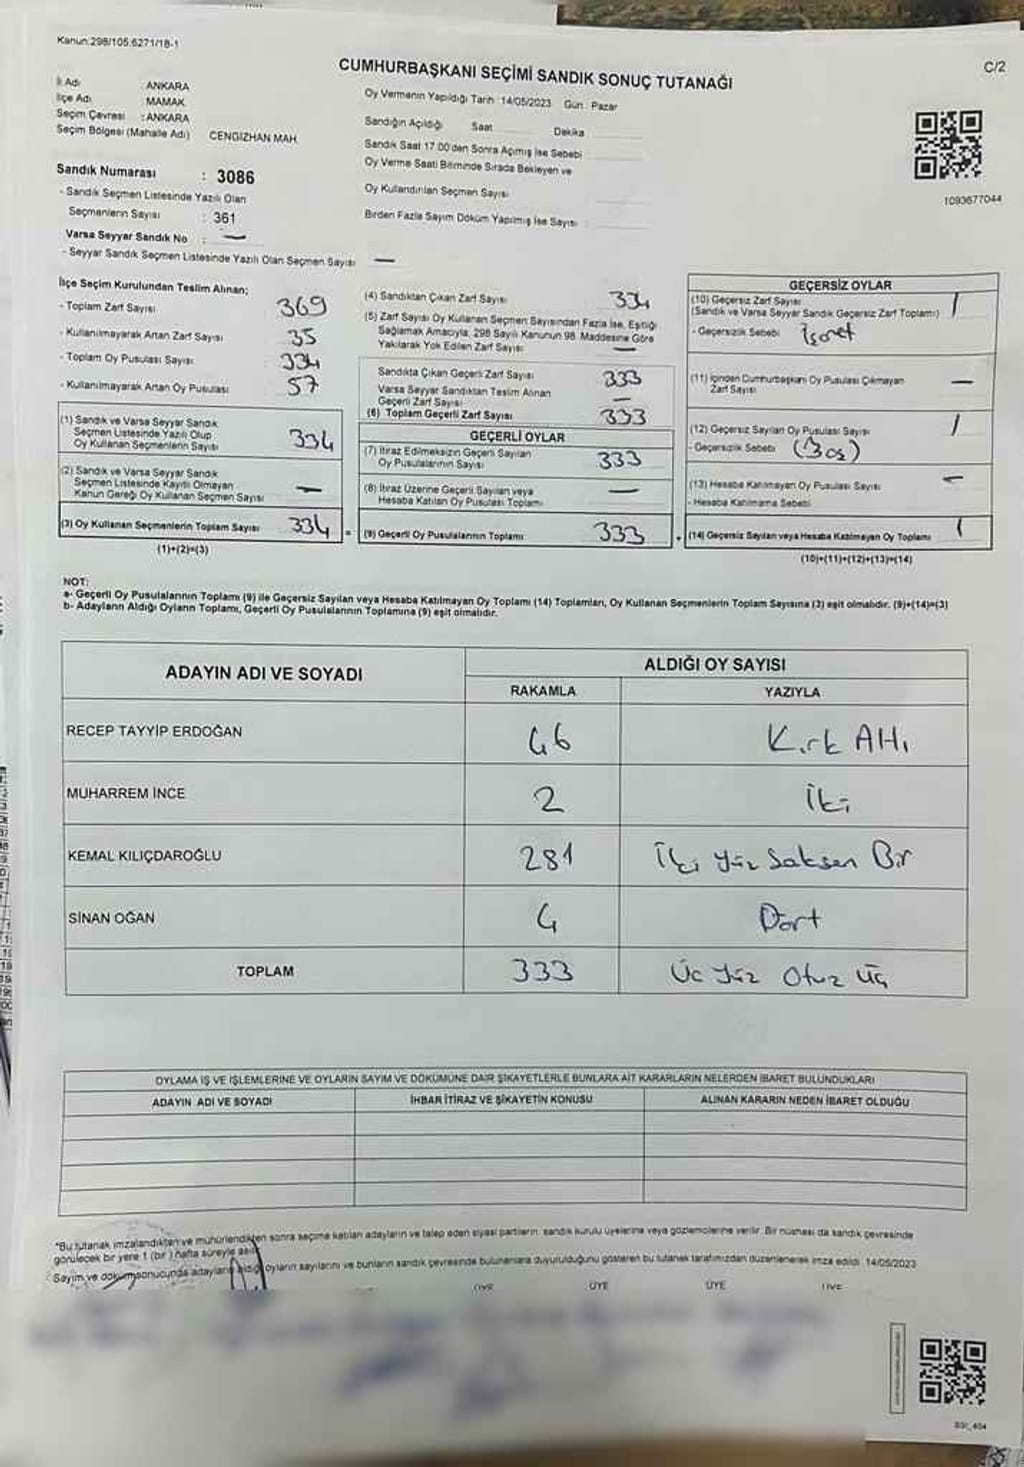 Kanun:298/105:6271/18-1
CUMHURBAŞKANI SEÇİMİ SANDIK SONUÇ TUTANAĞI
C/2
İl Adı : ANKARA
İlçe Adı MAMAK
Seçim Çevresi : ANKARA
Seçim Bölgesi (Mahalle Adı) CENGİZHAN MAH.
Sandık Numarası : 3086
- Sandık Seçmen Listesinde Yazılı Olan
Seçmenlerin Sayısı : 361
Varsa Seyyar Sandık No : —
- Seyyar Sandık Seçmen Listesinde Yazılı Olan Seçmen Sayısı —
Oy Vermenin Yapıldığı Tarih : 14/05/2023 Gün : Pazar
Sandığın Açıldığı Saat Dakika
Sandık Saat 17.00'den Sonra Açımış İse Sebebi
Oy Verme Saati Bitiminde Sırada Bekleyen ve
Oy Kullandırılan Seçmen Sayısı
Birden Fazla Sayım Döküm Yapılmış İse Sayısı
1093677044
İlçe Seçim Kurulundan Teslim Alınan;
- Toplam Zarf Sayısı 369
- Kullanılmayarak Artan Zarf Sayısı 35
- Toplam Oy Pusulası Sayısı 334
- Kullanılmayarak Artan Oy Pusulası 57
(1) Sandık ve Varsa Seyyar Sandık
Seçmen Listesinde Yazılı Olup
Oy Kullanan Seçmenlerin Sayısı 334
(2) Sandık ve Varsa Seyyar Sandık
Seçmen Listesinde Kayıtlı Olmayan
Kanun Gereği Oy Kullanan Seçmen Sayısı —
(3) Oy Kullanan Seçmenlerin Toplam Sayısı 334 =
(1)+(2)=(3)
(4) Sandıktan Çıkan Zarf Sayısı 334
(5) Zarf Sayısı Oy Kullanan Seçmen Sayısından Fazla İse, Eşitliği
Sağlamak Amacıyla, 298 Sayılı Kanunun 98. Maddesine Göre
Yakılarak Yok Edilen Zarf Sayısı —
Sandıkta Çıkan Geçerli Zarf Sayısı 333
Varsa Seyyar Sandıktan Teslim Alınan
Geçerli Zarf Sayısı —
(6) Toplam Geçerli Zarf Sayısı 333
GEÇERLİ OYLAR
(7) İtiraz Edilmeksizin Geçerli Sayılan
Oy Pusulalarının Sayısı 333
(8) İtiraz Üzerine Geçerli Sayılan veya
Hesaba Katılan Oy Pusulası Toplamı —
(9) Geçerli Oy Pusulalarının Toplamı 333 +
GEÇERSİZ OYLAR
(10) Geçersiz Zarf Sayısı
(Sandık ve Varsa Seyyar Sandık Geçersiz Zarf Toplamı) 1
- Geçersizlik Sebebi İşaret
(11) İçinden Cumhurbaşkanı Oy Pusulası Çıkmayan
Zarf Sayısı —
(12) Geçersiz Sayılan Oy Pusulası Sayısı 1
- Geçersizlik Sebebi (Boş)
(13) Hesaba Katılmayan Oy Pusulası Sayısı —
- Hesaba Katılmama Sebebi
(14) Geçersiz Sayılan veya Hesaba Katılmayan Oy Toplamı 1
(10)+(11)+(12)+(13)=(14)
NOT:
a- Geçerli Oy Pusulalarının Toplamı (9) ile Geçersiz Sayılan veya Hesaba Katılmayan Oy Toplamı (14) Toplamları, Oy Kullanan Seçmenlerin Toplam Sayısına (3) eşit olmalıdır. (9)+(14)=(3)
b- Adayların Aldığı Oyların Toplamı, Geçerli Oy Pusulalarının Toplamına (9) eşit olmalıdır.
ADAYIN ADI VE SOYADI
ALDIĞI OY SAYISI
RAKAMLA YAZIYLA
RECEP TAYYİP ERDOĞAN 46 Kırk Altı
MUHARREM İNCE 2 İki
KEMAL KILIÇDAROĞLU 281 İki Yüz Seksen Bir
SİNAN OĞAN 4 Dört
TOPLAM 333 Üç Yüz Otuz Üç
OYLAMA İŞ VE İŞLEMLERİNE VE OYLARIN SAYIM VE DÖKÜMÜNE DAİR ŞİKAYETLERLE BUNLARA AİT KARARLARIN NELERDEN İBARET BULUNDUKLARI
ADAYIN ADI VE SOYADI İHBAR İTİRAZ VE ŞİKAYETİN KONUSU ALINAN KARARIN NEDEN İBARET OLDUĞU
"Bu tutanak imzalandıktan ve mühürlendikten sonra seçime katılan adayların ve talep eden siyasi partilerin sandık kurulu üyelerine veya gözlemcilerine verilir. Bir nüshası da sandık çevresinde
görülecek bir yere 1 (bir) hafta süreyle asılır.
Sayım ve döküm sonucunda adayların aldığı oyların sayılarını ve bunların sandık çevresinde bulunanlara duyurulduğunu gösteren bu tutanak tarafımızdan düzenlenerek imza edildi. 14/05/2023
ÜYE ÜYE ÜYE ÜYE